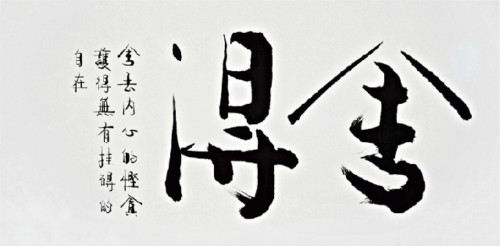 舍得
舍去内心的慳貪
獲得無有挂碍的
自在